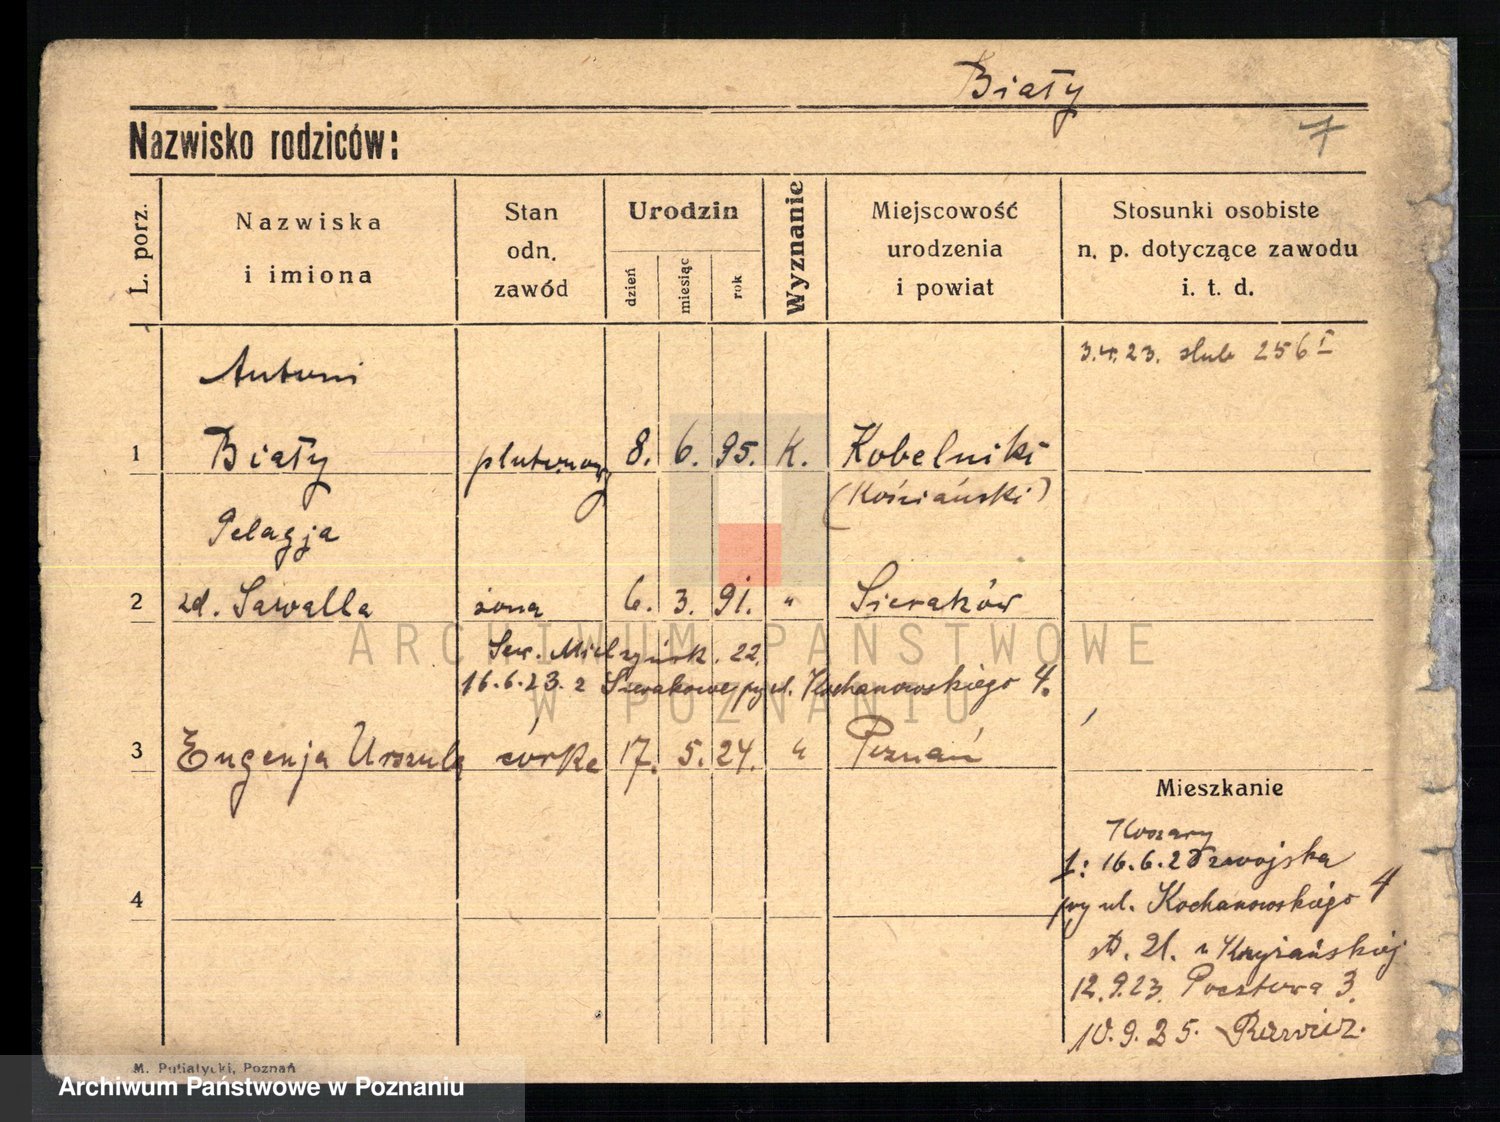 Biały
Nazwisko rodziców:
L. porz.
Nazwiska
i imiona
Stan
odn.
zawód
Urodzin
dzień
miesiąc
rok
Wyznanie
Miejscowość
urodzenia
i powiat
Stosunki osobiste
n. p. dotyczące zawodu
i. t. d.
3.4.23. slub 256 I
Antoni
1 Biały plutonowy 8. 6. 95. K. Kobelniki
(Kościański)
Pelagja
2 zd. Sawalla żona 6. 3. 91. " Sieraków
Sew. Mielżyńsk. 22.
16.6.23. z Sierakowa przy ul. Kochanowskiego 4.
3 Eugenja Urszula córka 17. 5. 24. " Poznań
Mieszkanie
Koszary
1: 16.6.23 wojska
4
przy ul. Kochanowskiego 4
st. 21. u Krzyżańskiej
12.9.23. Pocztowa 3.
10.9.25.
M. Putiatycki, Poznań
ARCHIWUM PAŃSTWOWE
W POZNANIU
Archiwum Państwowe w Poznaniu